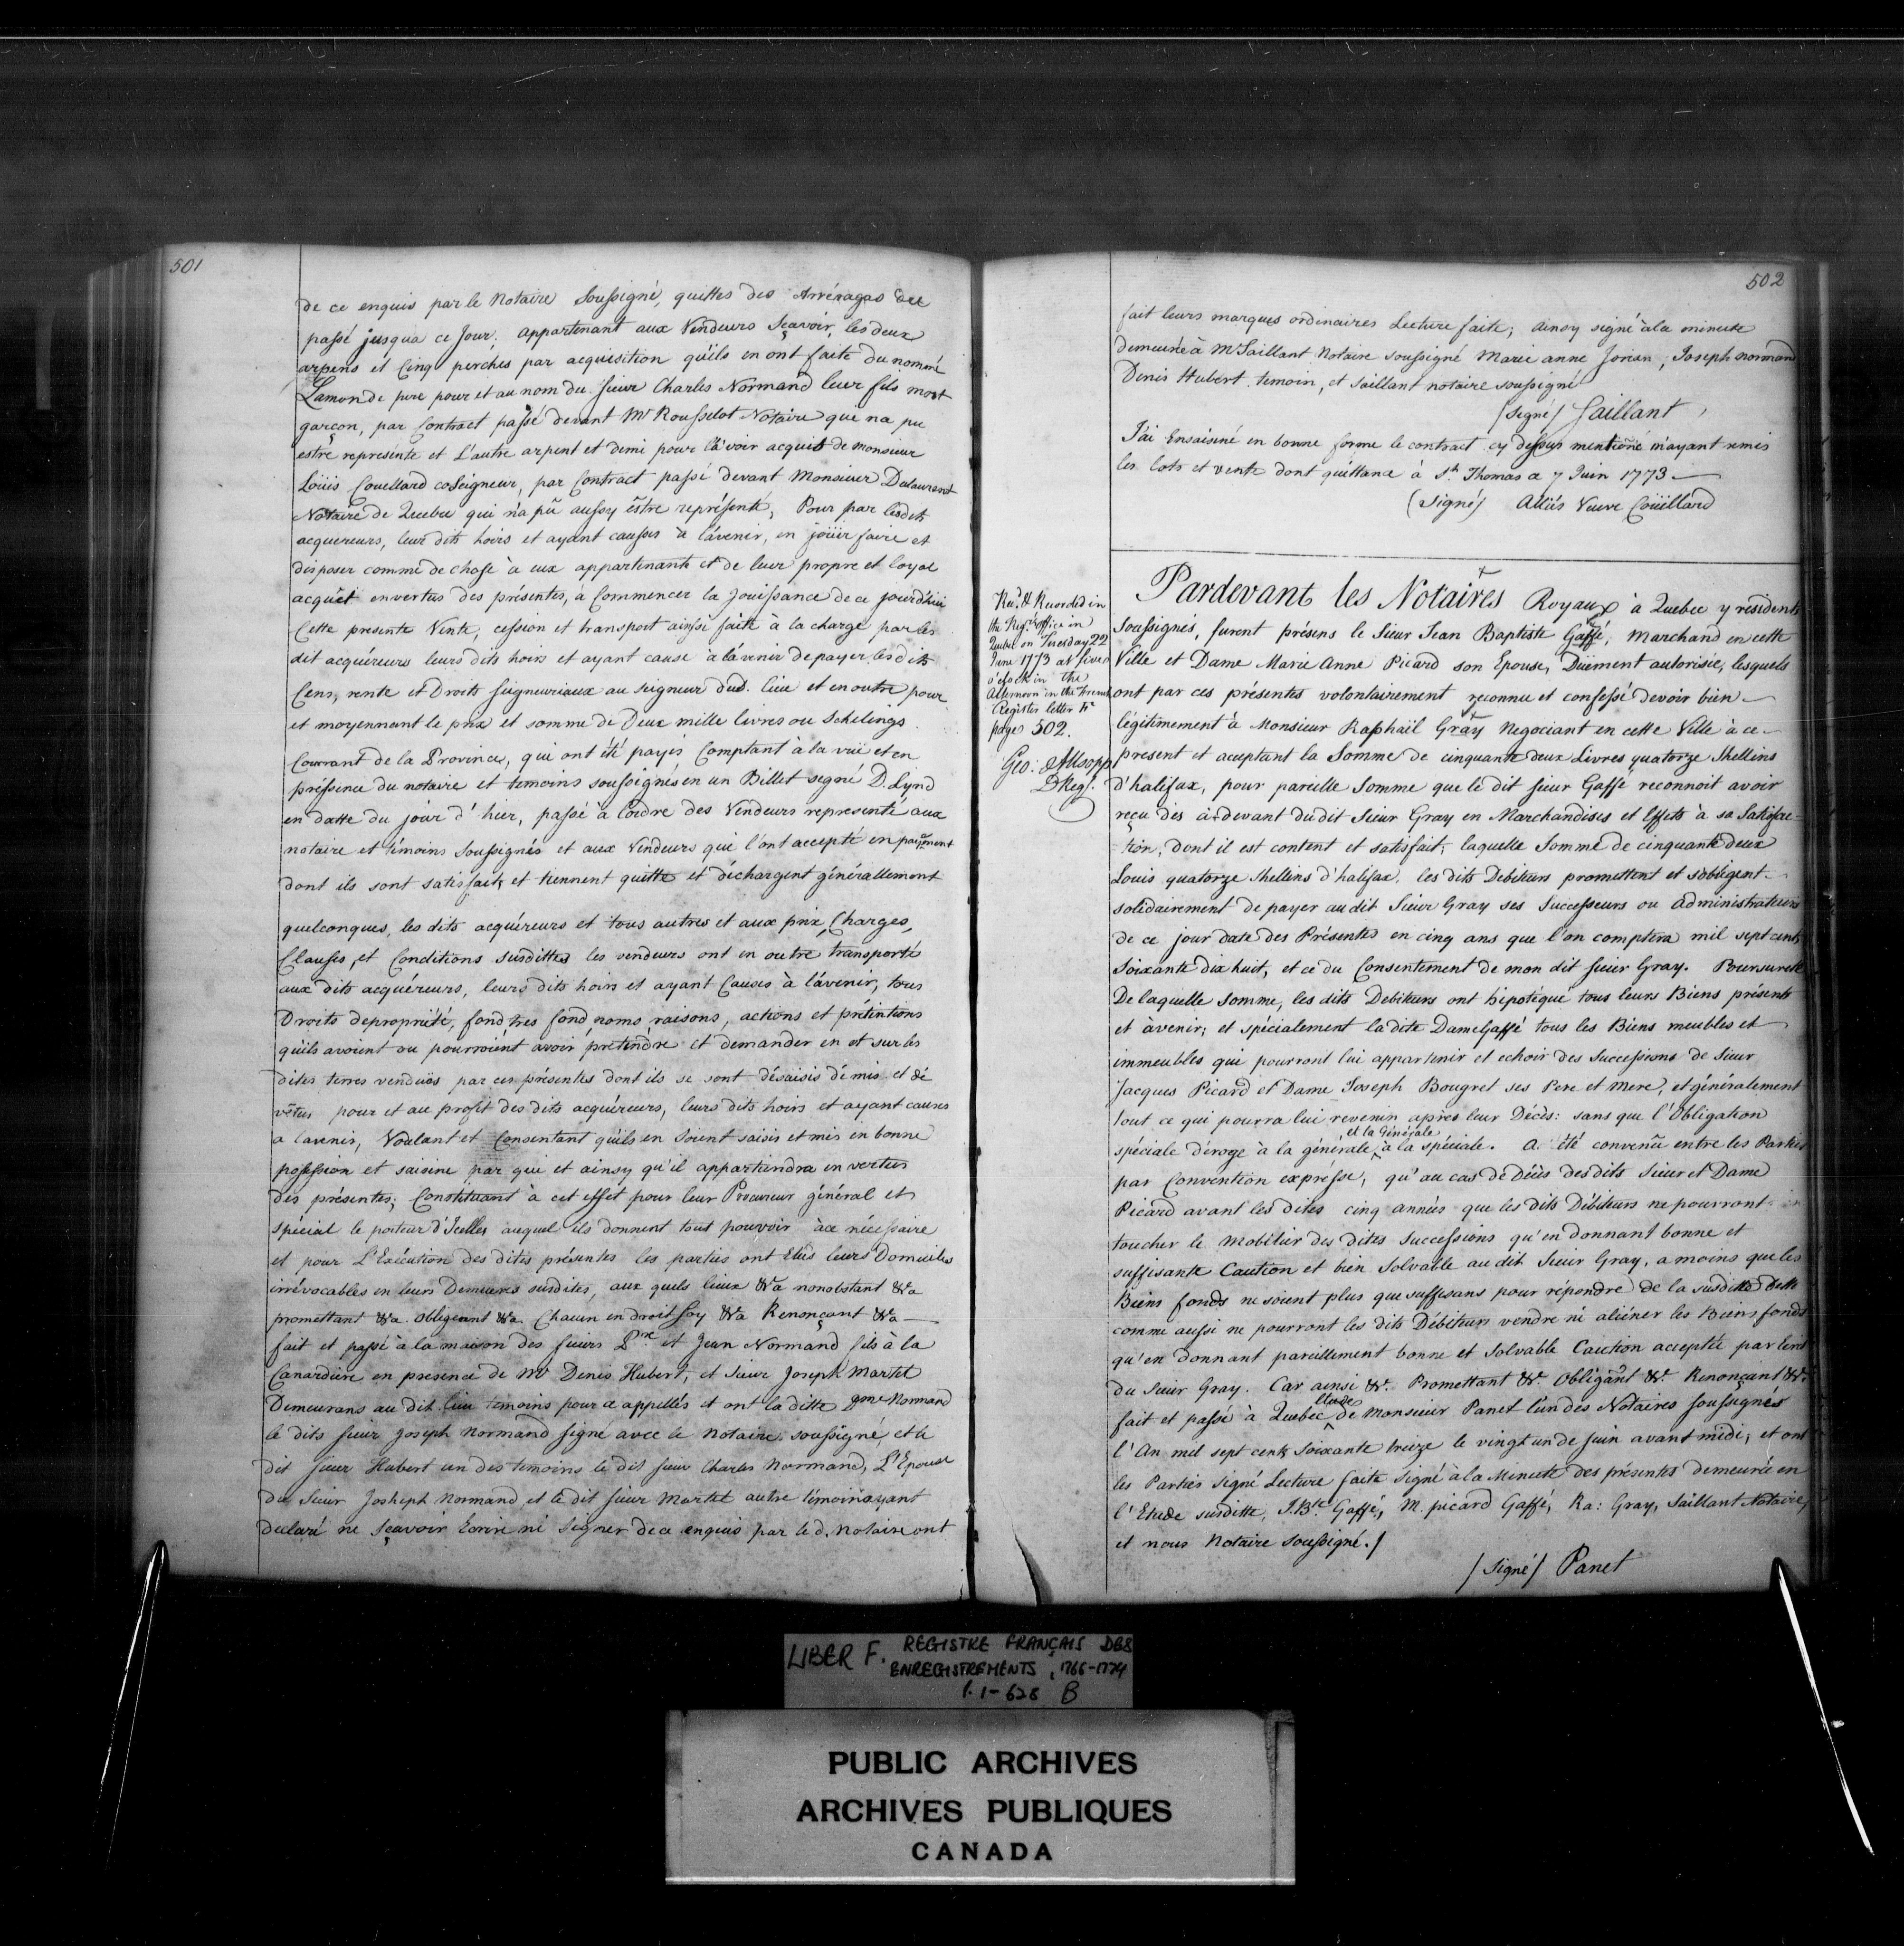 501
de ce enquis par le Notaire Soussigné, quittes des Arrérages du
passé jusqua ce Jour, appartenant aux Vendeurs Sçavoir, les deux
arpens et Cinq perches par acquisition qu'ils en ont faite du nommé
Lamonde pere pour et au nom du Sieur Charles Normand leur fils mort
garçon, par Contract passé devant Mr Rousselot Notaire que na pu
estre represénte et L'autre arpent et demi pour l'avoir acquis de monsieur
Loüis Couellard coSeigneur, par Contract passé devant Monsieur Dulaurent
Notaire de Quebec qui n'a pû aussy éstre représenté, Pour par lesdits
acquereurs, leur dits hoirs et ayant causses à l'avenir, en joüir faire et
disposer comme de chose à eux appartenante et de leur propre et loyal
acquêt envertus des présentes, a Commencer la Jouissance de ce jourd'hui
Cette presente Vente, cession et transport ainsi faite à la charge par les
dit acquéreurs leurs dits hoirs et ayant cause à l'avenir de payer lesdits
Cens, rente et Droits Seigneuriaux au Seigneur dud. lieu et en outre pour
et moyennant le prix et somme de Deux mille livres ou Schelings
Courrant de la Province, qui ont été payés Comptant à la vüe et en
préssence du notaire et temoins soussignés en un Billet segné D. Lynd
en datte du jour d'hier, passé à l'ordre des Vendeurs representé aux
notaire et témoins Soussignés et aux Vendeurs qui l'ont accepté en payement
dont ils sont satisfaits et tiennent quitte et déchargent générallement
quelconques, les dits acquéreurs et tous autres et aux prix, Charges,
Clauses, et Conditions susdittes les vendeurs ont en outre transporté
aux dits acquéreurs, leurs dits hoirs et ayant Causes à l'avenir, tous
Droits de propriété, fond, tres fond, noms, raisons, actions et prétintions
qu'ils avoient ou pourroient avoir, pretendre et demander en et sur les
dites terres venduës par ces présentes dont ils se sont désaisis démis et dé
vêtus pour et au profit des dits acquéreurs, leurs dits hoirs et ayant causes
a l'avenir, Voulant et Consentant qu'ils en Soient saisis et mis en bonne
possession et saisine par qui et ainsy qu'il appartiendra en vertus
des présentes; Constituant à cet effet pour leur Procureur général et
Spécial le porteur d'Icelles auquel ils donnent tout pouvoir à ce nécessaire
et pour L'Exécution des dites présentes les parties ont Elus leurs Domiciles
irrévocables en leurs Demeures susdites, aux quels lieux &a nonobstant &a
promettant &a. obligeant &a. Chacun en droit Soy &a Renonçant &a
fait et passé à la maison des sieurs Prre et Jean Normand fils à la
Canardiere en presence de Mr Denis Hubert, et Sieur Joseph Martet
Demeurans au dit lieu temoins pour ce appellés et ont la ditte Dme Normand
le dits sieur Joseph Normand signé avec le Notaire soussigné, et le
dit sieur Hubert un des temoins le dit sieur Charles Normand, L'Epouse
du Sieur Joshept Normand et le dit sieur Martet autre témoin ayant
declaré ne Sçavoir Ecrire ni Signer de ce enquis par le d. notaire ont
502
fait leurs marques ordinaires Lecture faite; ainsy signé à la minute
demeurée à Mr Saillant Notaire soussigné Marie anne Jorian, Joseph normand
Denis Hubert temoin, et Saillant notaire soussigné
/Signé/ Saillant
J'ai Ensaisiné en bonne forme le contract cy dessus mentioné m'ayant remis
les lots et vente dont quittance à St Thomas a 7 Juin 1773
(Signé) Alliés Veuve Coüillard
Recd. & Recorded in
the Regrs. office in
Quebec on Tuesday 22
June 1773 at five
o'clock in the
Afternoon in the French
Register letter F
page 502.
Geo: Allsopp
D Reg.
Pardevant les Notaires Royaux à Quebec y résidents
Soussignés, furent présens le Sieur Jean Baptiste Gaffé, Marchand en cette
Ville et Dame Marie Anne Picard son Epouse, Düement autorisée, lesquels
ont par ces présentes volontairement reconnu et confessé devoir bien
légitimement à Monsieur Raphaël Gray Negociant en cette Ville à ce
present et acceptant la Somme de cinquante deux Livres quatorze Shellins
d'halifax, pour pareille Somme que le dit Sieur Gaffé reconnoit avoir
reçu dès ci-devant dudit Sieur Gray en Marchandises et Effets à sa Satisfac=
=tion, dont il est content et satisfait; laquelle Somme de cinquante deux
Louis quatorze Shellins d'halifax, les dits Debiteurs promettent et s'obligent
solidairement de payer au dit Sieur Gray ses Successeurs ou administrateurs
de ce jour date des Présentes en cinq ans que l'on comptera mil sept cents
Soixante dix huit, et ce du Consentement de mon dit Sieur Gray. Pour sureté
De laquelle somme, les dits Debiteurs ont hipotéqué tous leurs Biens présents
et avenir; et spécialement la dite Dame Gaffé tous les Biens meubles et
immeubles qui pourront lui appartenir et echoir des Successions de Sieur
Jacques Picard et Dame Joseph Bougret ses Pere et mere, et généralement
tout ce qui pourra lui revenir après leur Décès: sans que l'Obligation
spéciale déroge à la générale et la Générale à la spéciale. A été convenu entre les Parties
par Convention expresse, qu'au cas de Décès des dits Sieur et Dame
Picard avant les dites cinq années que les dits Débiteurs ne pourront
toucher le Mobilier des dites Successions qu'en donnant bonne et
suffisante Caution et bien Solvable au dit Sieur Gray, a moins que les
Biens fonds ne soient plus que suffisans pour répondre de la susditte Dette
comme aussi ne pourront les dits Débiteurs vendre ni aliéner les Biens fonds
qu'en donnant pareillement bonne et Solvable Caution acceptée par Ecrit
du Sieur Gray. Car ainsi &c. Promettant &c. Obligant &c. Renonçant &c.
fait et passé à Quebec Etude de Monsieur Panet l'un des Notaires soussignés
l'An mil sept cents Soixante treize le vingt un de Juin avant midi, et ont
les Parties signé Lecture faite Signé à la Minutte des présentes demeurée en
l'Etude susditte, J. Bte Gaffé, M. picard Gaffé, Ra: Gray, Saillant Notaire,
et nous Notaire soussigné./
/Signé/ Panet
LIBER F. REGISTRE FRANÇAIS DES
ENREGISTREMENTS, 1766-1774
P. 1-628 B
PUBLIC ARCHIVES
ARCHIVES PUBLIQUES
CANADA